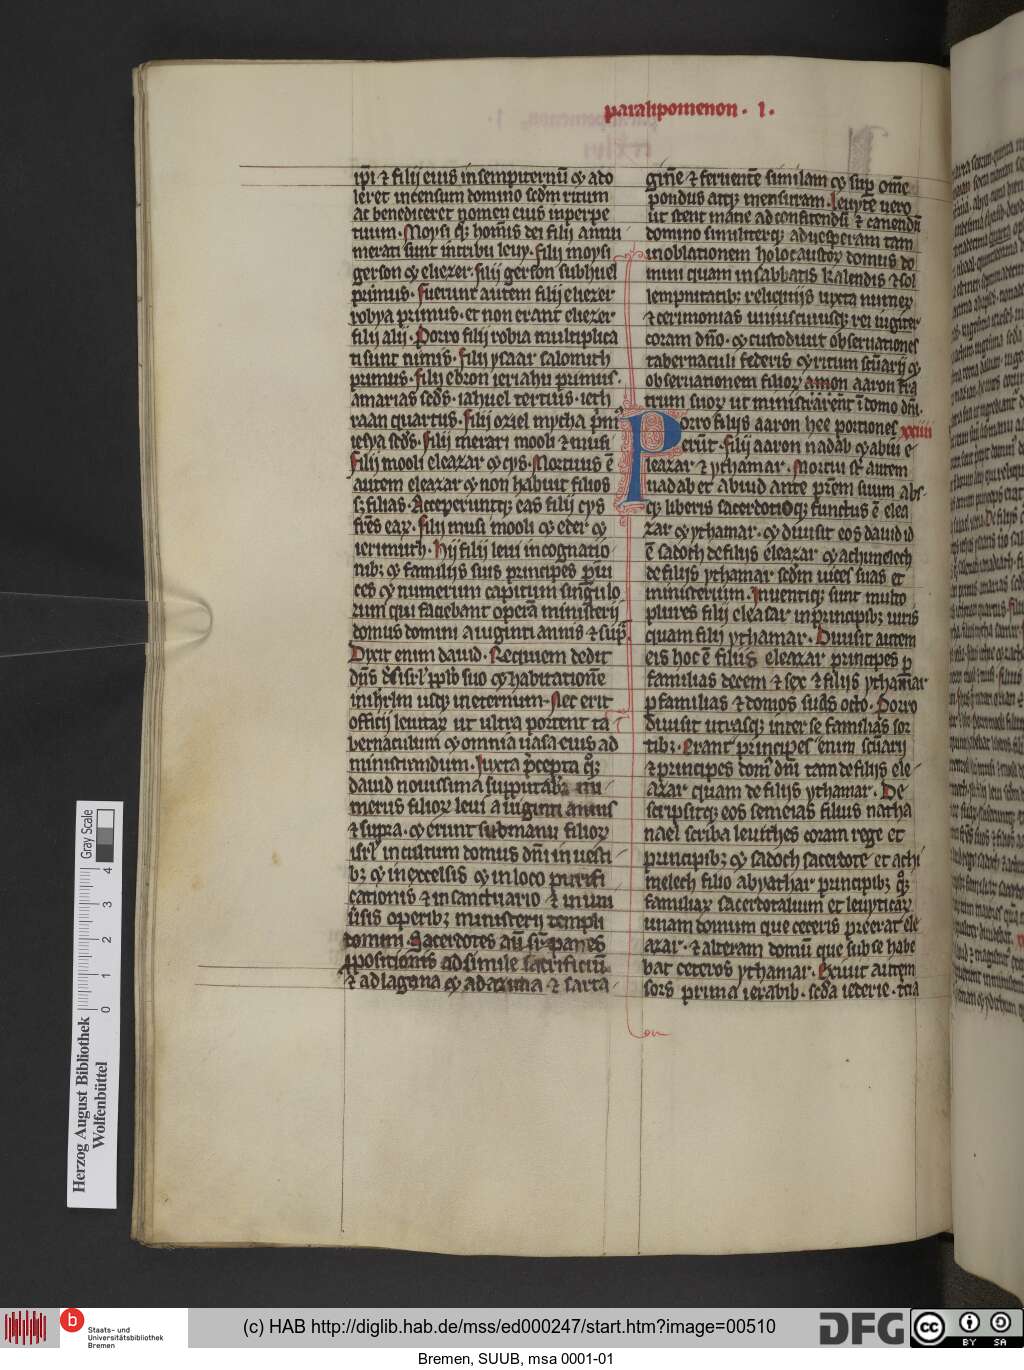 paralipomenon · I ·
ip̄i ⁊ filij eius in sempiternū ⁊ ado
leret incensum domino scd̄m ritum
ac benediceret nomen eius in perpe
tuum · Moysi qͦ hoīs dei filij annu
merati sunt in tribu leuy · filij moysi
gerson ⁊ eliezer · filij gerson subhuel
primus · Fuerunt autem filij eliezer
robya primus · et non erant eliezer
filij alij · Porro filij robia multiplica
ti sunt nimis · filij ysaar salomith
primus · filij ebron ieriahu primus ·
amarias scd̄s · iahuel tertius · ieth
raan quartus · filij oziel mycha p̄m̄s
iesya scd̄s · filij merari mooli ⁊ musi
filij mooli eleazar ⁊ cys · Mortuus ē
autem eleazar ⁊ non habuit filios
sꝫ filias · Acceperuntqꝫ eas filij cys
fr̄es eaꝝ · filij musi mooli ⁊ eder ⁊
ierimuth · Hij filij leui in cognatio
nibꝫ ⁊ familijs suis principes ꝑ ui
ces ⁊ numerum capitum singulo
rum qui faciebant opera ministerij
domus domini a uiginti annis ⁊ sup̄
Dixit enim dauid · Requiem dedit
dn̄s d̄s isrl̄ pp̄lo suo ⁊ habitationē
in ihrl̄m usqꝫ in eternum · Nec erit
officij leuitaꝝ ut ultra portent ta
bernaculum ⁊ omnia uasa eius ad
ministrandum · Iuxta p̄cepta qͦꝫ
dauid nouissima supputabit̄ nu
merus filioꝝ leui a uiginti annis
⁊ supra · ⁊ erunt sub manu filioꝝ
isrl̄ in cultum domus dn̄i in uesti
bꝫ ⁊ in excelsis ⁊ in loco purifi
cationis ⁊ in sanctuario ⁊ in uni
ūsis operibꝫ ministerij templi
domini · Sacerdotes aū sr̄ panes
ꝓpositionis ad simile sacrificiū
⁊ ad lagana ⁊ ad azima ⁊ sarta
gīne ⁊ feruentē similam ⁊ sup̄ om̄e
pondus atqꝫ mensuram · Leuyte uero
ut stent mane ad confitendū ⁊ canendū
domino similiterqꝫ ad uesperam tam
in oblationem holocaustoꝝ domus do
mini quam in sabbatis kalendis ⁊ sol
lempnitatibꝫ reliquijs iuxta numeꝝ
⁊ cerimonias uniuscuiusqꝫ rei iugiter
coram dn̄o · ⁊ custodiunt obseruationes
tabernaculi federis ⁊ ritum scūarij ⁊
obseruationem filioꝝ amon aaron fra
trum suoꝝ ut ministrarent ī domo dn̄i ·
Porro filijs aaron hee portiones xxiiii
erūt · filij aaron nadab ⁊ abiu e
leazar ⁊ ythamar · Mortui sr̄ autem
nadab et abiud ante pr̄em suum abs
qꝫ liberis sacerdotioqꝫ functus ē elea
zar ⁊ ythamar · ⁊ diuisit eos dauid id
ē sadoch de filijs eleazar ⁊ achimelech
de filijs ythamar scd̄m uices suas et
ministerium · Inuentiqꝫ sunt multo
plures filij eleasar in principibꝫ uiris
quam filij ythamar · Diuisit autem
eis hoc ē filijs eleazar principes ꝑ
familias decem ⁊ sex ⁊ filijs ythamar
ꝑ familias ⁊ domos suas octo · Porro
diuisit utrasqꝫ inter se familias sor
tibꝫ · Erant principes enim scūarij
⁊ principes dom⁹ dn̄i tam de filijs ele
azar quam de filijs ythamar · De
scripsitqꝫ eos semeias filius natha
nael scriba leuithes coram rege et
principibꝫ ⁊ sadoch sacerdote et achi
melech filio abyathar principibꝫ qͦꝫ
familiaꝝ sacerdotalium et leuyticaꝝ
unam domum que ceteris preerat ele
azar · ⁊ alteram domū que sub se habe
bat ceteros ythamar · Exiuit autem
sors prima ierabib · scd̄a ieterie · tcīa
Herzog August Bibliothek
Wolfenbüttel
Gray Scale
0 1 2 3 4
b
Staats- und
Universitätsbibliothek
Bremen
(c) HAB http://diglib.hab.de/mss/ed000247/start.htm?image=00510
DFG
cc
BY SA
Bremen, SUUB, msa 0001-01